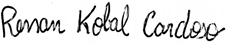 Renan Kobal Cardoso